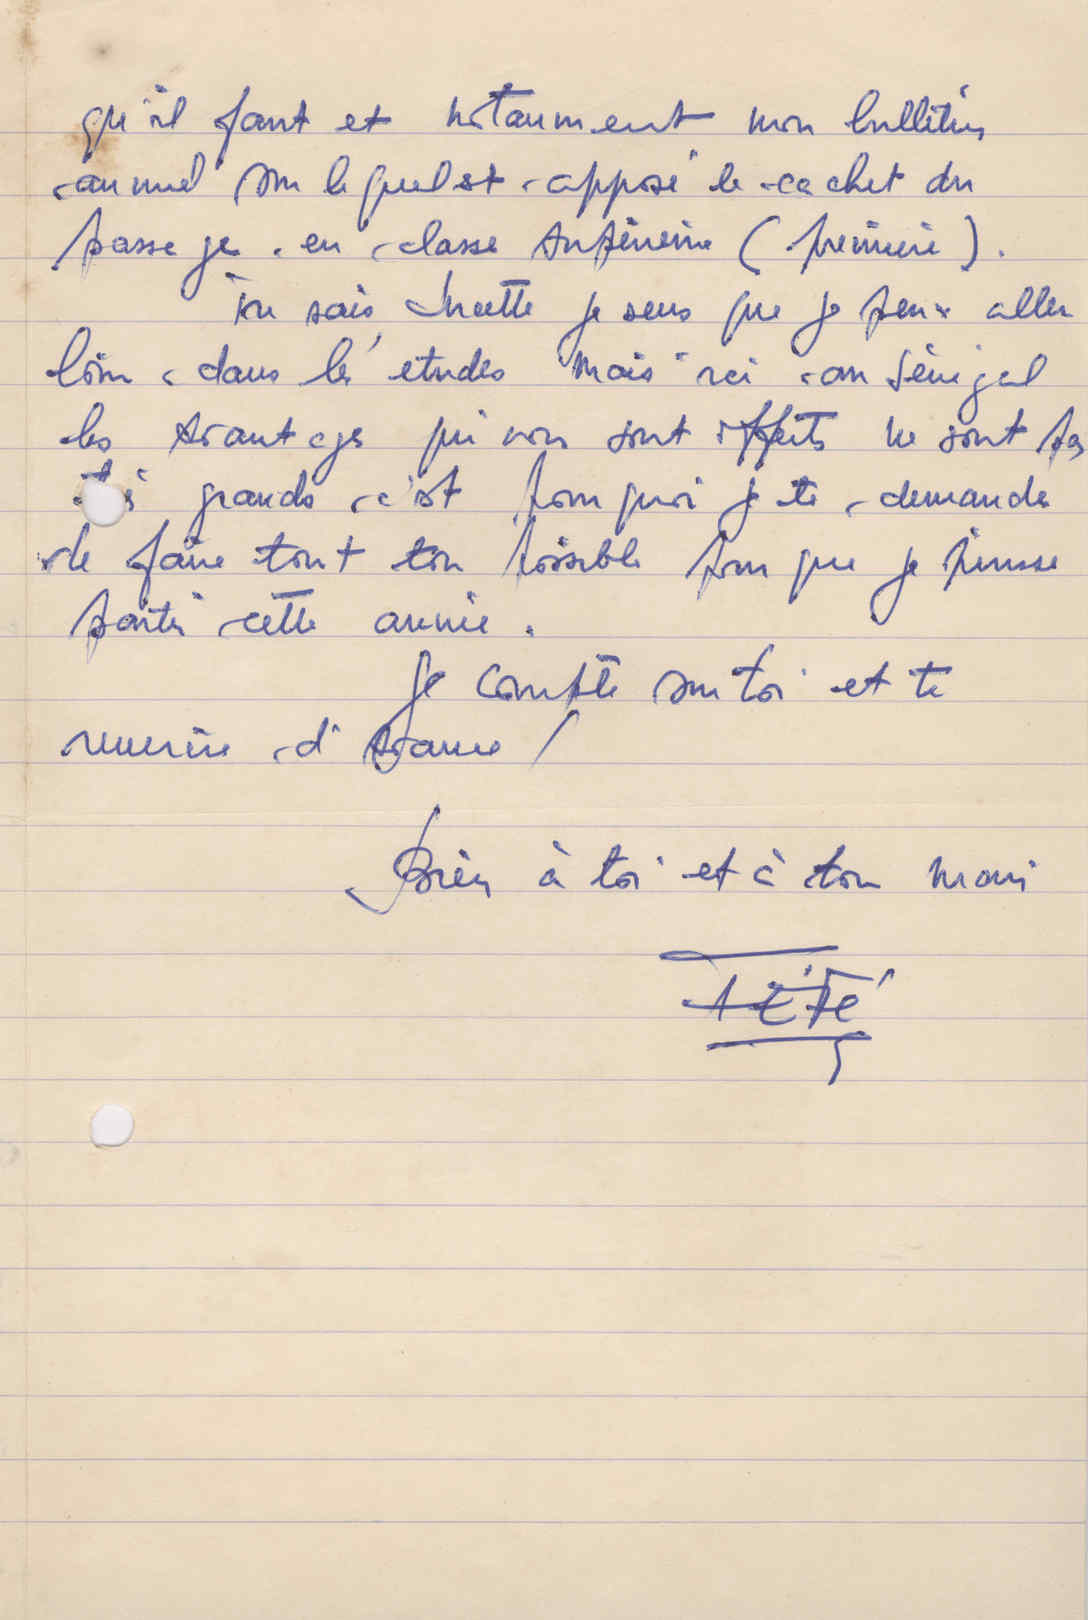 qu'il faut et notamment mon bulletin
annuel sur lequel est apposé le cachet du
passage en classe supérieure (première).
Tu sais je sens que je peux aller
loin dans les études mais ici au Sénégal
les avantages qui nous sont offerts ne sont pas
très grands c'est pourquoi je te demande
de faire tout ton possible pour que je puisse
partir cette année.
Je compte sur toi et te
remercie d'avance !
Bien à toi et à ton mari
TÉTÉ